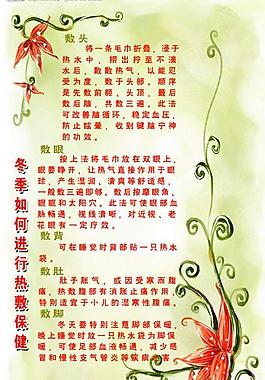 敷头
将一条毛巾折叠，浸于
热水中，捞出拧至不滴
水后，敷敷热气，以能忍
受为度，敷于头部，顺序
是先敷前额、头顶，最后
敷后脑，共敷三遍。此法
可改善脑循环，稳定血压，
防止眩晕，收到健脑宁神
的功效。
敷眼
按上法将毛巾放在双眼上，
眼要睁开，让热气直接作用于眼
球，产生湿润、清爽等舒适感，
一般敷三遍即够。敷后按摩眼角、
眼眶和太阳穴。此法可使眼部血
脉畅通，视线清晰，对近视、老
花眼有一定疗效。
敷背
可在睡觉时背部贴一只热水
袋。
敷肚
肚子胀气，或因受寒而腹
痛，热敷腹部有消胀止痛作用，
特别适宜于小儿的湿寒性腹痛。
敷脚
冬天要特别注意脚部保暖，
晚上睡觉时放一只热水袋为脚保
暖，可使足部血液畅通，减少感
冒和慢性支气管炎等疾病
冬季如何进行热敷保健